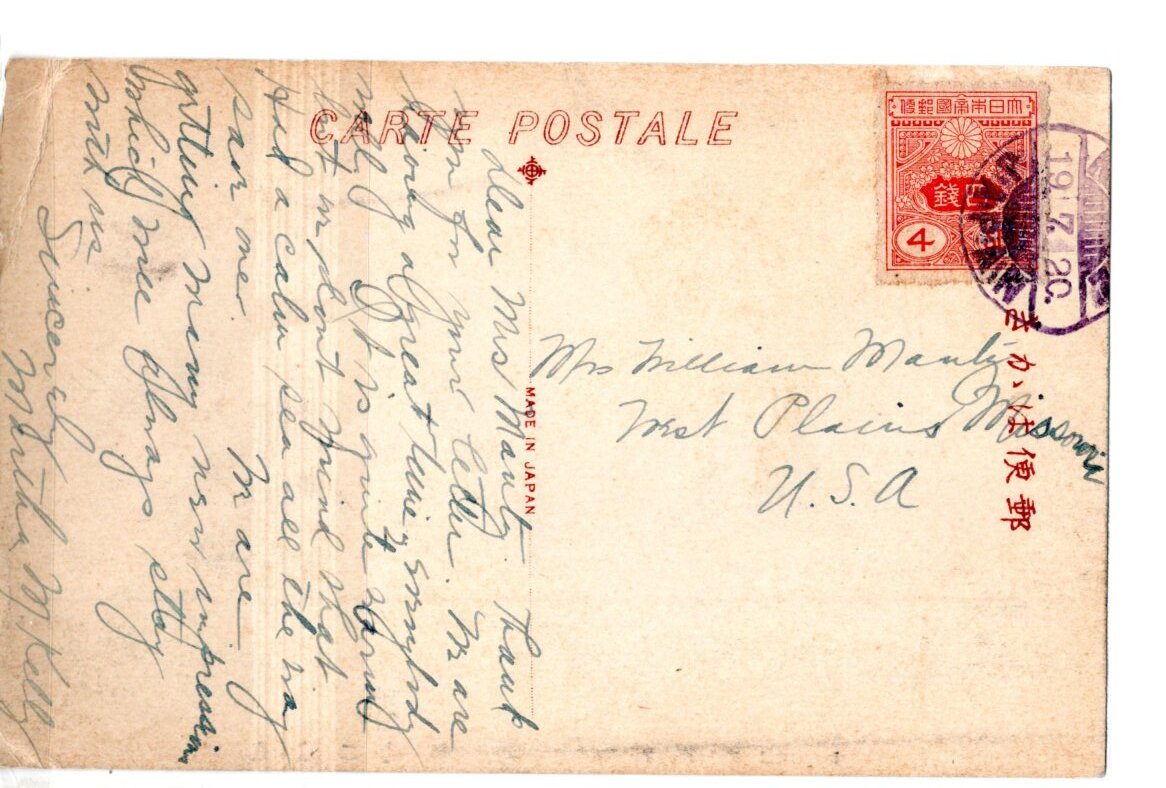 CARTE POSTALE
Dear Mrs Manly. Thank
you for your letter. We are
having a great time, everybody
It is quite
but we dont mind that
had a calm sea all the way
We are
getting many new impressions
which will always stay
with us
Sincerely
Martha Kelly
MADE IN JAPAN
大日本帝國郵便
四錢
4
19.7.20.
郵便はがき
Mrs William Manly
West Plains Missouri
U.S.A